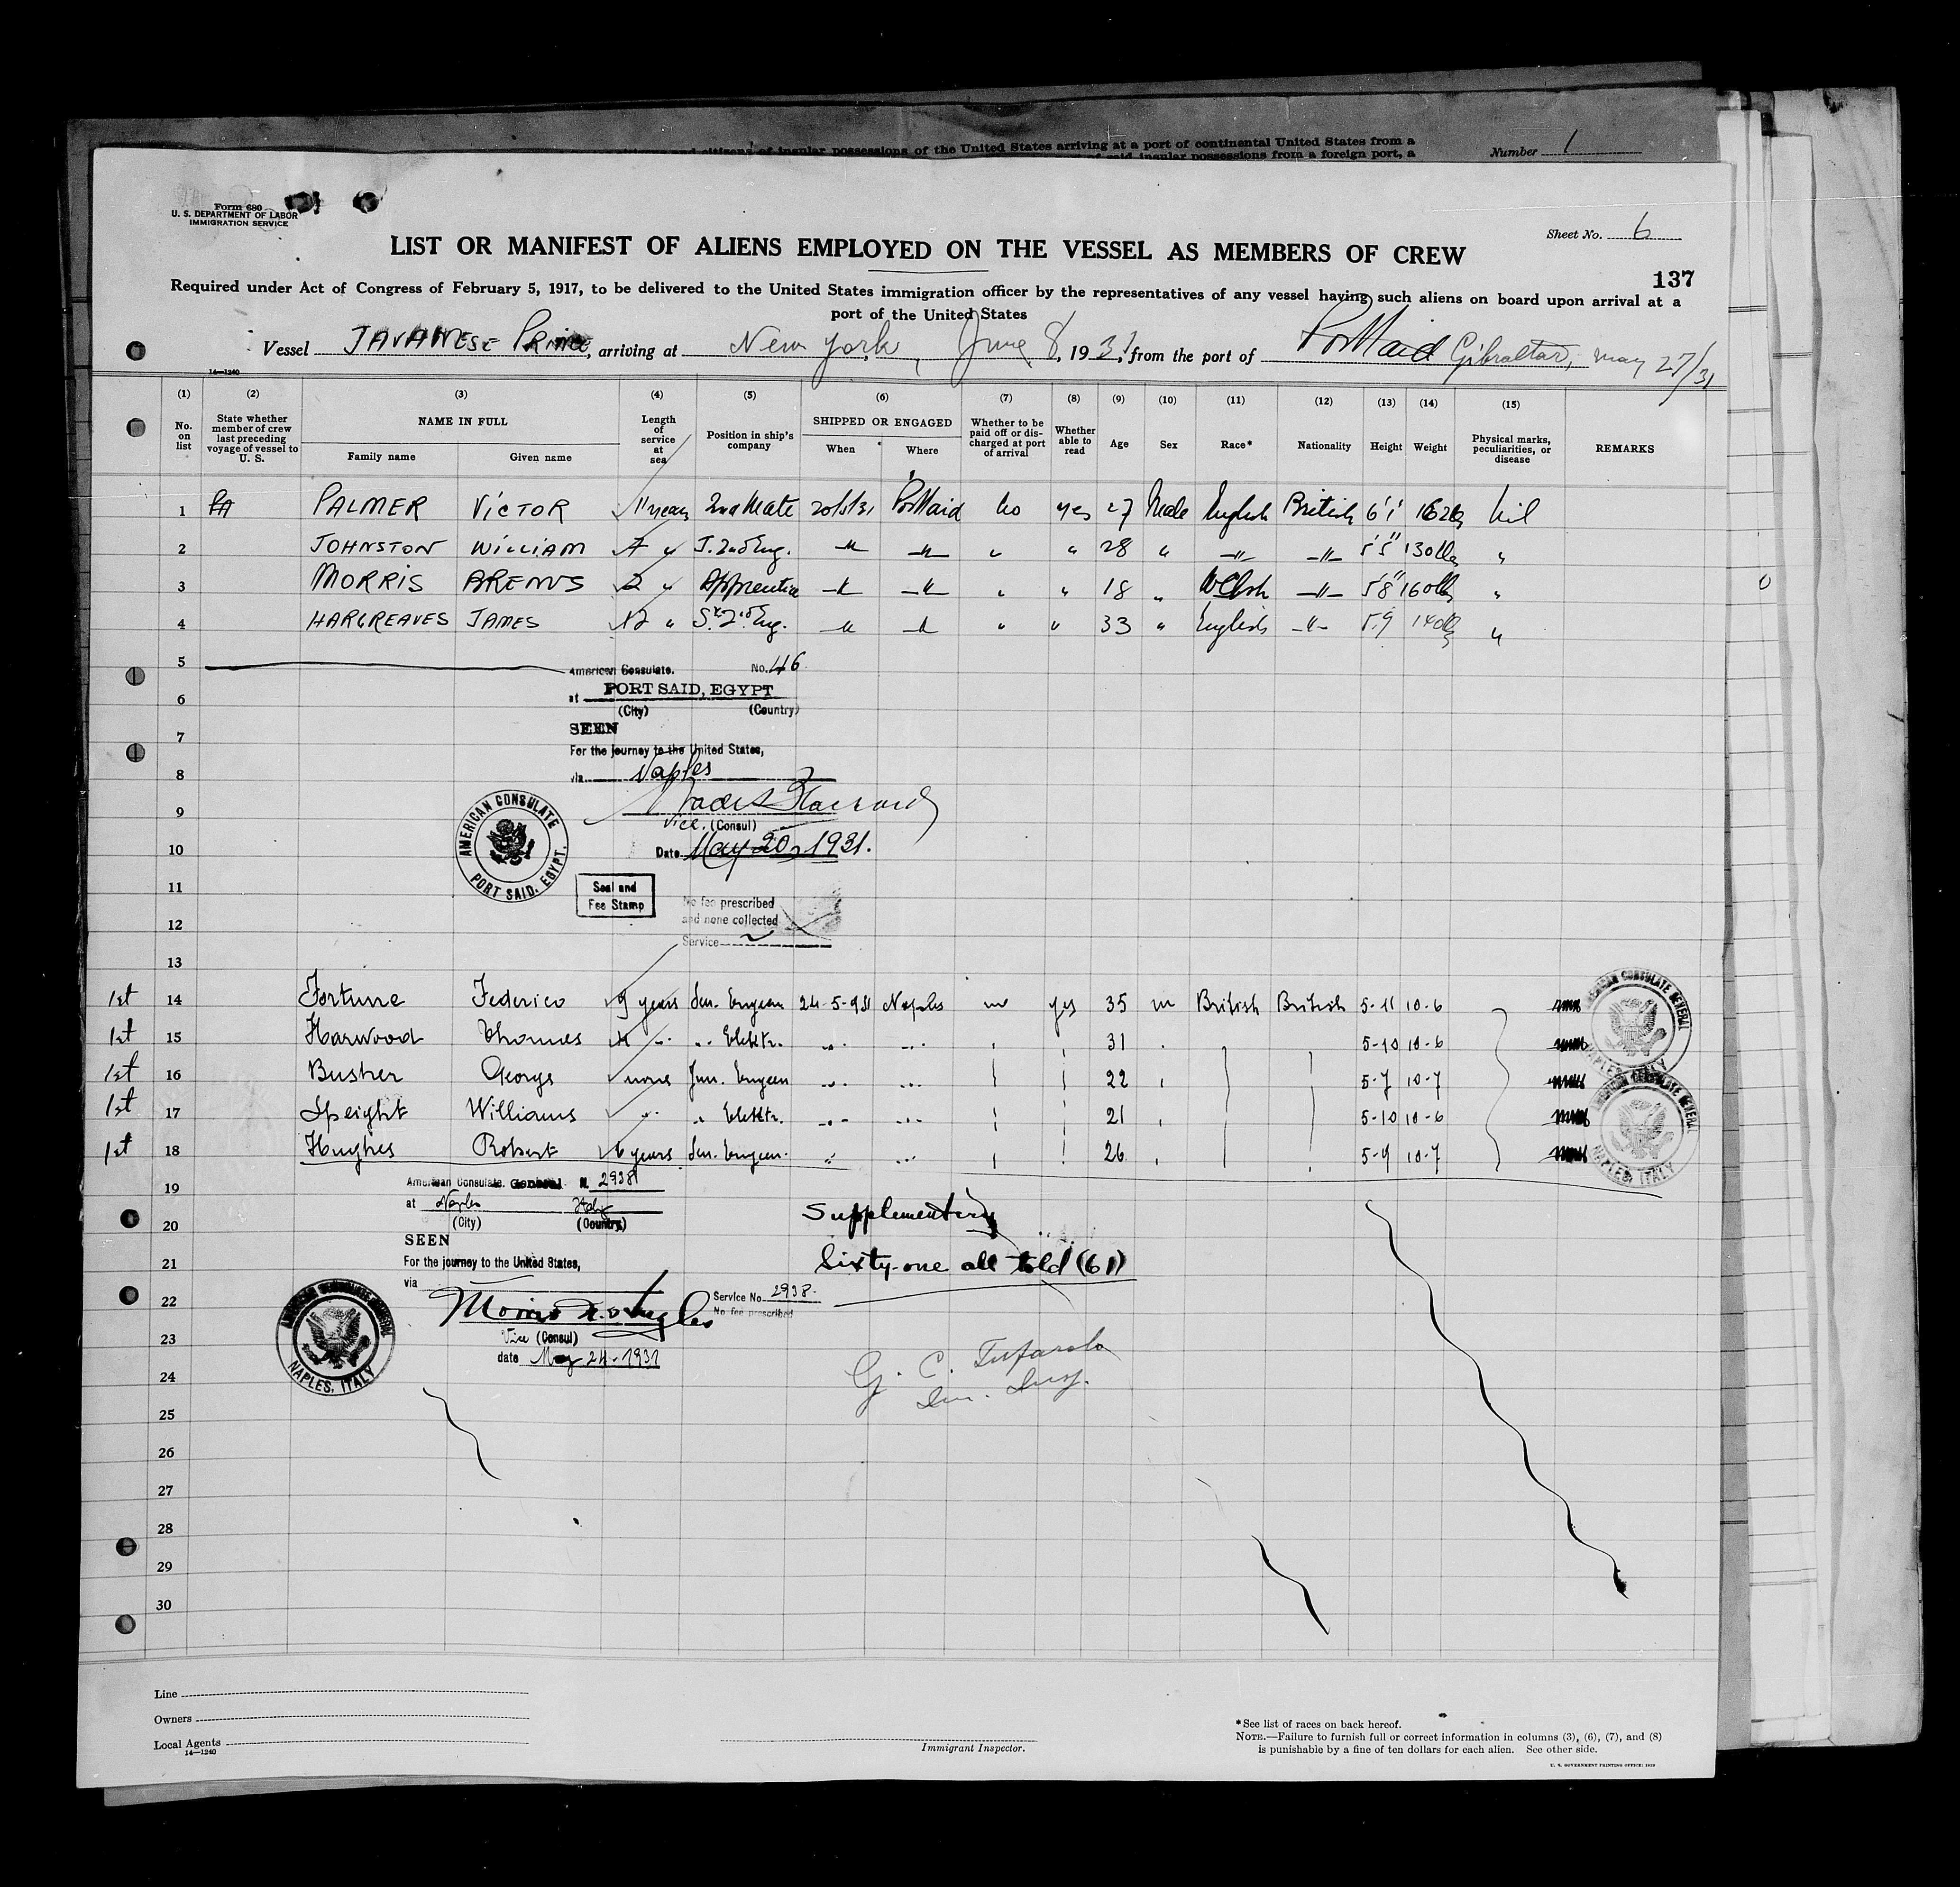 and citizens of insular possessions of the United States arriving at a port of continental United States from a
of said insular possessions from a foreign port, a
Number 1
Form 680
U. S. DEPARTMENT OF LABOR
IMMIGRATION SERVICE
Sheet No. 6
LIST OR MANIFEST OF ALIENS EMPLOYED ON THE VESSEL AS MEMBERS OF CREW
137
Required under Act of Congress of February 5, 1917, to be delivered to the United States immigration officer by the representatives of any vessel having such aliens on board upon arrival at a
port of the United States
Vessel JAVANESE PRINCE, arriving at New York, June 8, 1931, from the port of Port Said Gibraltar, May 27/31
14—1240
(1) (2) (3) (4) (5) (6) (7) (8) (9) (10) (11) (12) (13) (14) (15)
No. on list
State whether member of crew last preceding voyage of vessel to U. S.
NAME IN FULL
Family name
Given name
Length of service at sea
Position in ship's company
SHIPPED OR ENGAGED
When
Where
Whether to be paid off or discharged at port of arrival
Whether able to read
Age
Sex
Race*
Nationality
Height
Weight
Physical marks, peculiarities, or disease
REMARKS
1 PALMER VICTOR 11 years 2nd Mate 20/5/31 Port Said No yes 27 Male English British 6'1" 162lbs Nil
2 JOHNSTON WILLIAM 7 " J. 2nd Eng. —"— —"— " " 28 " —"— —"— 5'5" 130lbs "
3 MORRIS 2 " Apprentice —"— —"— " " 18 " Welsh —"— 5'8" 160lbs "
4 HARGREAVES JAMES 12 " 2nd Eng. —"— —"— " " 33 " English —"— 5.9 140lbs "
5
American Consulate. No. 46
at PORT SAID, EGYPT
6
(City) (Country)
7
SEEN
For the journey to the United States,
8
via Naples
9
Vice (Consul)
10
Date May 20, 1931.
AMERICAN CONSULATE
PORT SAID, EGYPT.
11
Seal and
Fee Stamp
No fee prescribed
and none collected
12
Service
13
1st 14 Fortune Federico 9 years Sen. Engeen 24-5-931 Naples no yes 35 m British British 5-11 10-6
1st 15 Harwood Thomas " Elektr. " " 31 5-10 10-6
1st 16 Busher George none Jun. Engeen " " 22 5-7 10-7
1st 17 Speight Williams " " Elektr. " " 21 5-10 10-6
1st 18 Hughes Robert 6 years Sen. Engeen. " " 26 5-9 10-7
AMERICAN CONSULATE GENERAL
NAPLES, ITALY
AMERICAN CONSULATE GENERAL
NAPLES, ITALY
19
American Consulate. General N. 2938
at Naples Italy
(City) (Country)
20
Supplementary
SEEN
21
For the journey to the United States,
Sixty-one all told (61)
via
22
Service No. 2938.
No fee prescribed
23
Vice (Consul)
date May 24-1931
AMERICAN CONSULATE GENERAL
NAPLES, ITALY
24
G. C. Tufarolo
Im. Insp.
25
26
27
28
29
30
Line
Owners
Local Agents
14—1240
Immigrant Inspector.
*See list of races on back hereof.
NOTE.—Failure to furnish full or correct information in columns (3), (6), (7), and (8)
is punishable by a fine of ten dollars for each alien. See other side.
U. S. GOVERNMENT PRINTING OFFICE: 1930